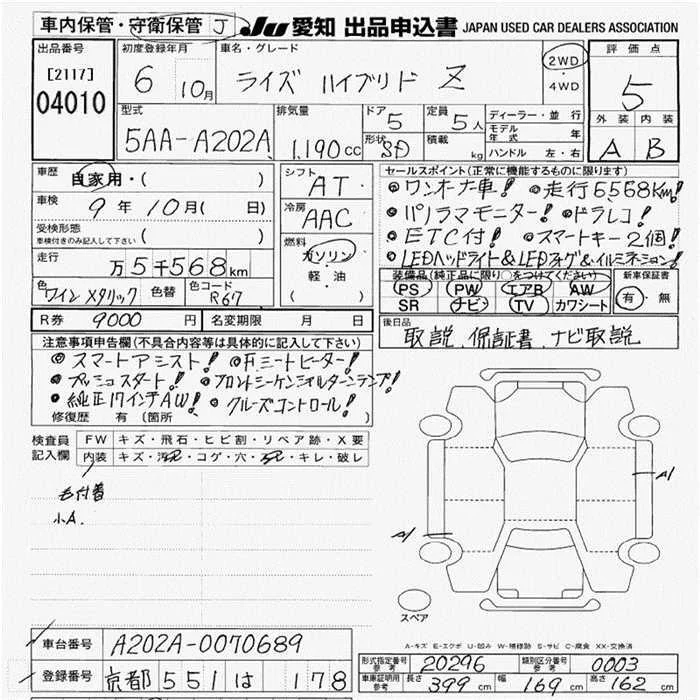 車内保管・守衛保管 J JU 愛知 出品申込書 JAPAN USED CAR DEALERS ASSOCIATION
出品番号 初度登録年月 車名・グレード 評価点
[2117] 6 10月 ライズ ハイブリド Z 2WD・4WD 5
04010
型式 排気量 ドア 定員 ディーラー・並行 外装 内装
5AA-A202A 1,190cc 5 5人 モデル年式 年 A B
形状 SD 積載 kg ハンドル 左・右
車歴 自家用・( ) シフト AT セールスポイント(正常に機能するものに限ります)
ワンオーナー車! 走行6568Km!
車検 9年10月( 日) 冷房 AAC パノラマモニター! ドラレコ!
受検形態 車検付きのみ記入して下さい ( ) ETC付! スマートキー2個!
燃料 ガソリン・軽・油 LEDヘッドライト&LEDフォグ&イルミネーション!
走行 万5千568km 装備品(純正品に限り○をつけてください) 新車保証書
PS PW エアB AW 有・無
色 ワインメタリック 色替 色コード R67 SR ナビ TV カワシート
R券 9000円 名変期限 月 日 後日品 取説、保証書、ナビ取説
注意事項申告欄(不具合内容等は具体的に記入して下さい)
スマートアシスト! F.ミートヒーター!
プッシュスタート! フロントシーケンシャルターンランプ!
純正17インチAW! クルーズコントロール!
修復歴 有(箇所 )
検査員記入欄 FW キズ・飛石・ヒビ割・リペア跡・X要
内装 キズ・汚レ・コゲ・穴・スレ・キレ・破レ
毛付着
小A.
A1
A1
スペア
A-キズ E-エクボ U-凹み W-補修跡 S-サビ C-腐食 XX-交換済
車台番号 A202A-0070689
形式指定番号 参考 20296 類別区分番号 参考 0003
登録番号 京都 551 は 178
車庫証明用 参考 長さ 399cm 幅 169cm 高さ 162cm